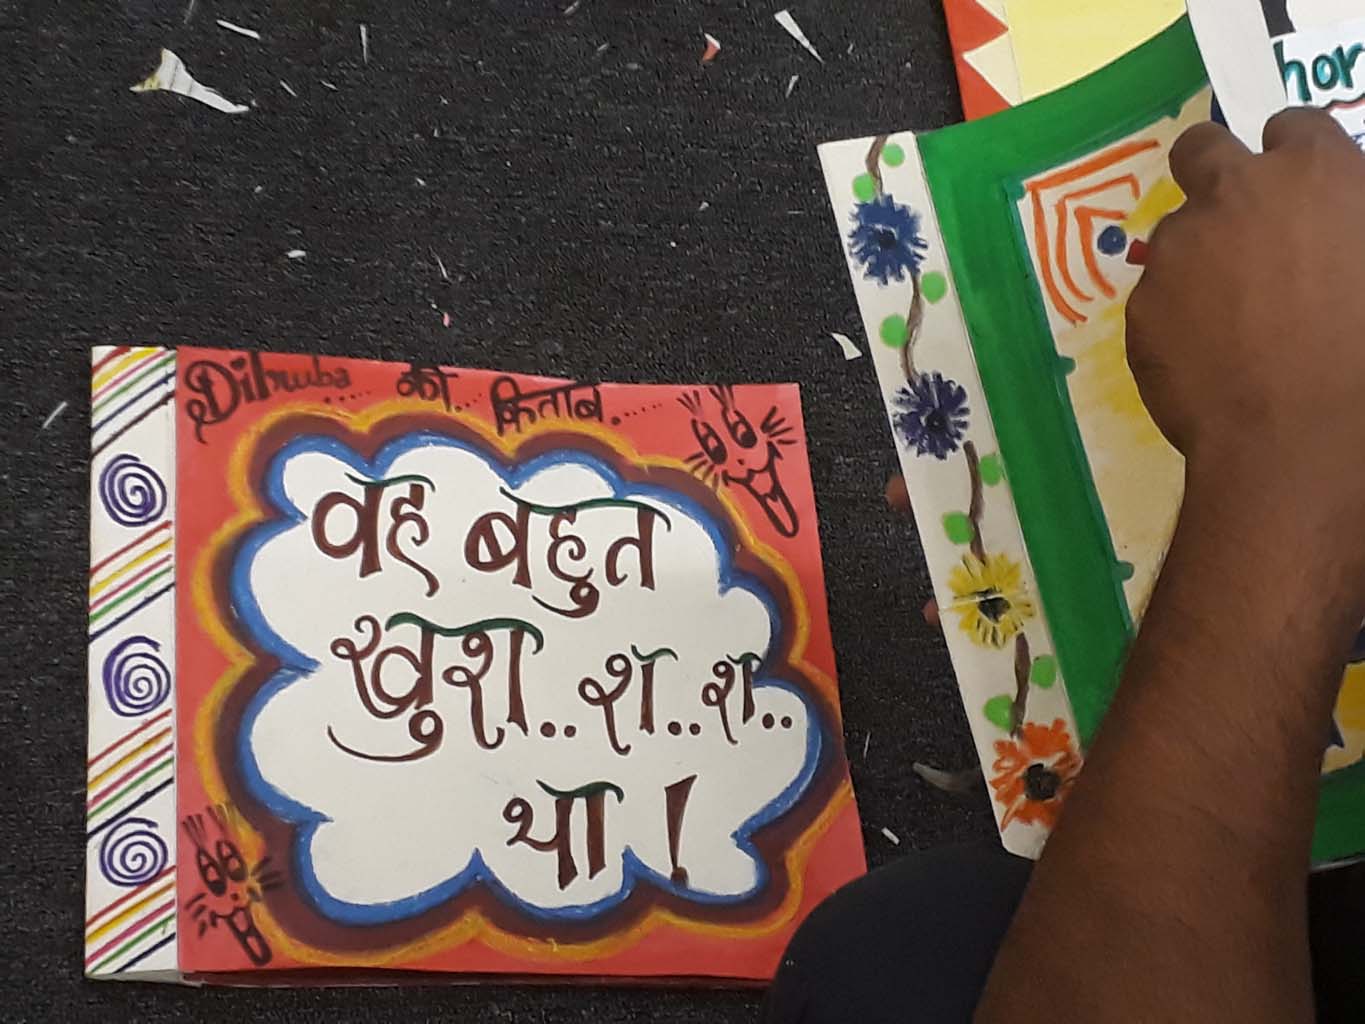 Dilruba..... की... किताब.....
वह बहुत
खुश..श..श..
था !
hor